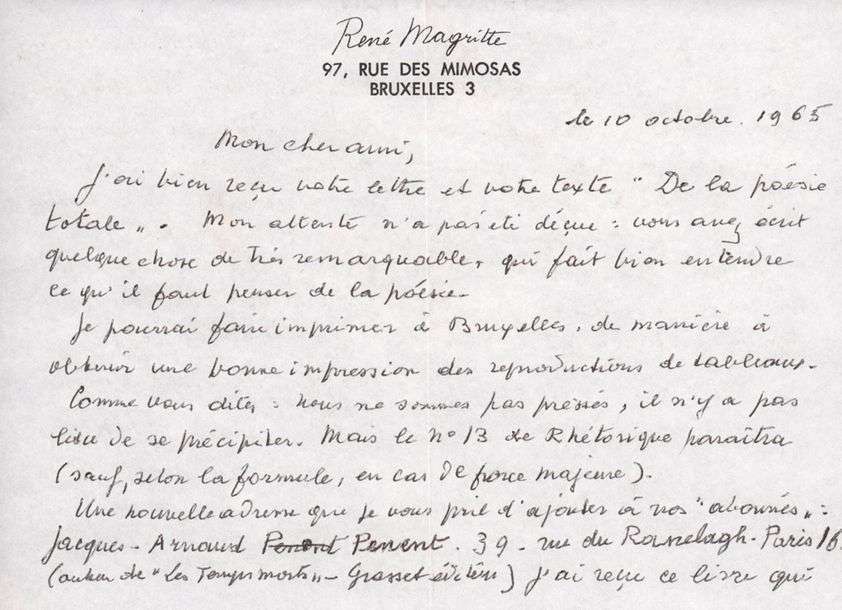 René Magritte
97, RUE DES MIMOSAS
BRUXELLES 3
le 10 octobre. 1965
Mon cher ami,
J'ai bien reçu votre lettre et votre texte " De la poésie
totale ". Mon attente n'a pas été déçue : vous avez écrit
quelque chose de très remarquable, qui fait bien entendre
ce qu'il faut penser de la poésie.
Je pourrai faire imprimer à Bruxelles, de manière à
obtenir une bonne impression des reproductions de tableaux.
Comme vous dites : nous ne sommes pas pressés, il n'y a pas
lieu de se précipiter. Mais le n° 13 de Rhétorique paraîtra
(sauf, selon la formule, en cas de force majeure).
Une nouvelle adresse que je vous prie d'ajouter à nos "abonnés" :
Jacques-Arnaud Penent. 39. rue du Ranelagh - Paris 16.
(auteur de "Les Temps morts" - Grasset éditeur) J'ai reçu ce livre qui